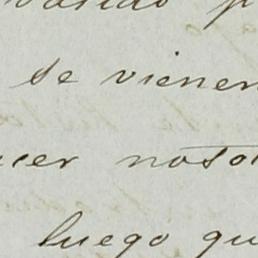 se vienen
cer nosot
luego qu